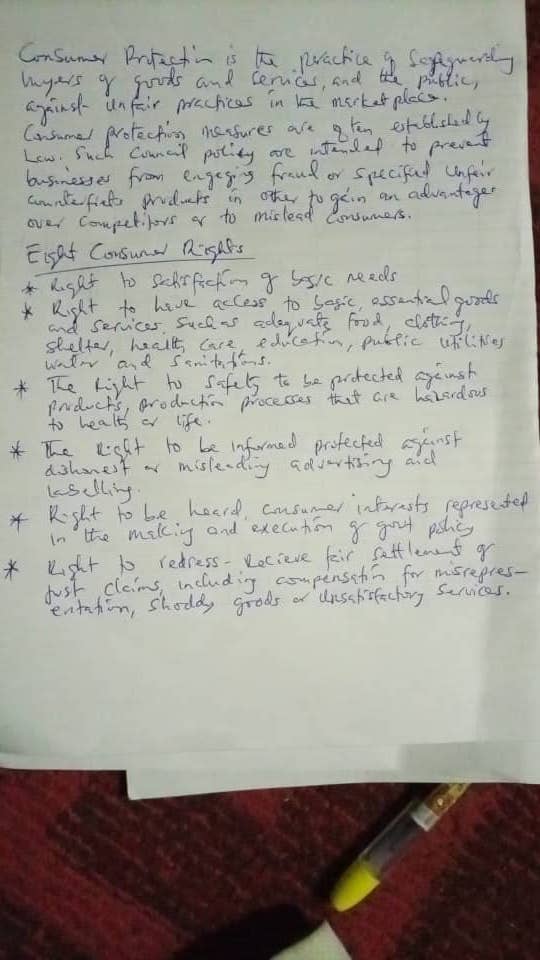 Consumer Protection is the practice of Safeguarding
buyers of goods and services, and the public,
against unfair practices in the market place.
Consumer protection measures are often established by
Law. Such Council policy are intended to prevent
businesses from engaging fraud or specified unfair
counterfiets products in other to gain an advantages
over Competitors or to mislead Consumers.
Eight Consumer Rights
* Right to Satisfaction of basic needs
* Right to have access to basic, essential goods
and services, such as adequate food, clothing,
shelter, health care, education, public utilities
water and Sanitations.
* The Right to Safety to be protected against
products, production processes that are hazardous
to health or life.
* The Right to be informed protected against
dishonest or misleading advertising and
labelling.
* Right to be heard, consumer interests represented
in the making and execution of govt policy
* Right to redress - Recieve fair Settlement of
just claims, including compensation for misrepres-
entation, shoddy goods or unsatisfactory Services.